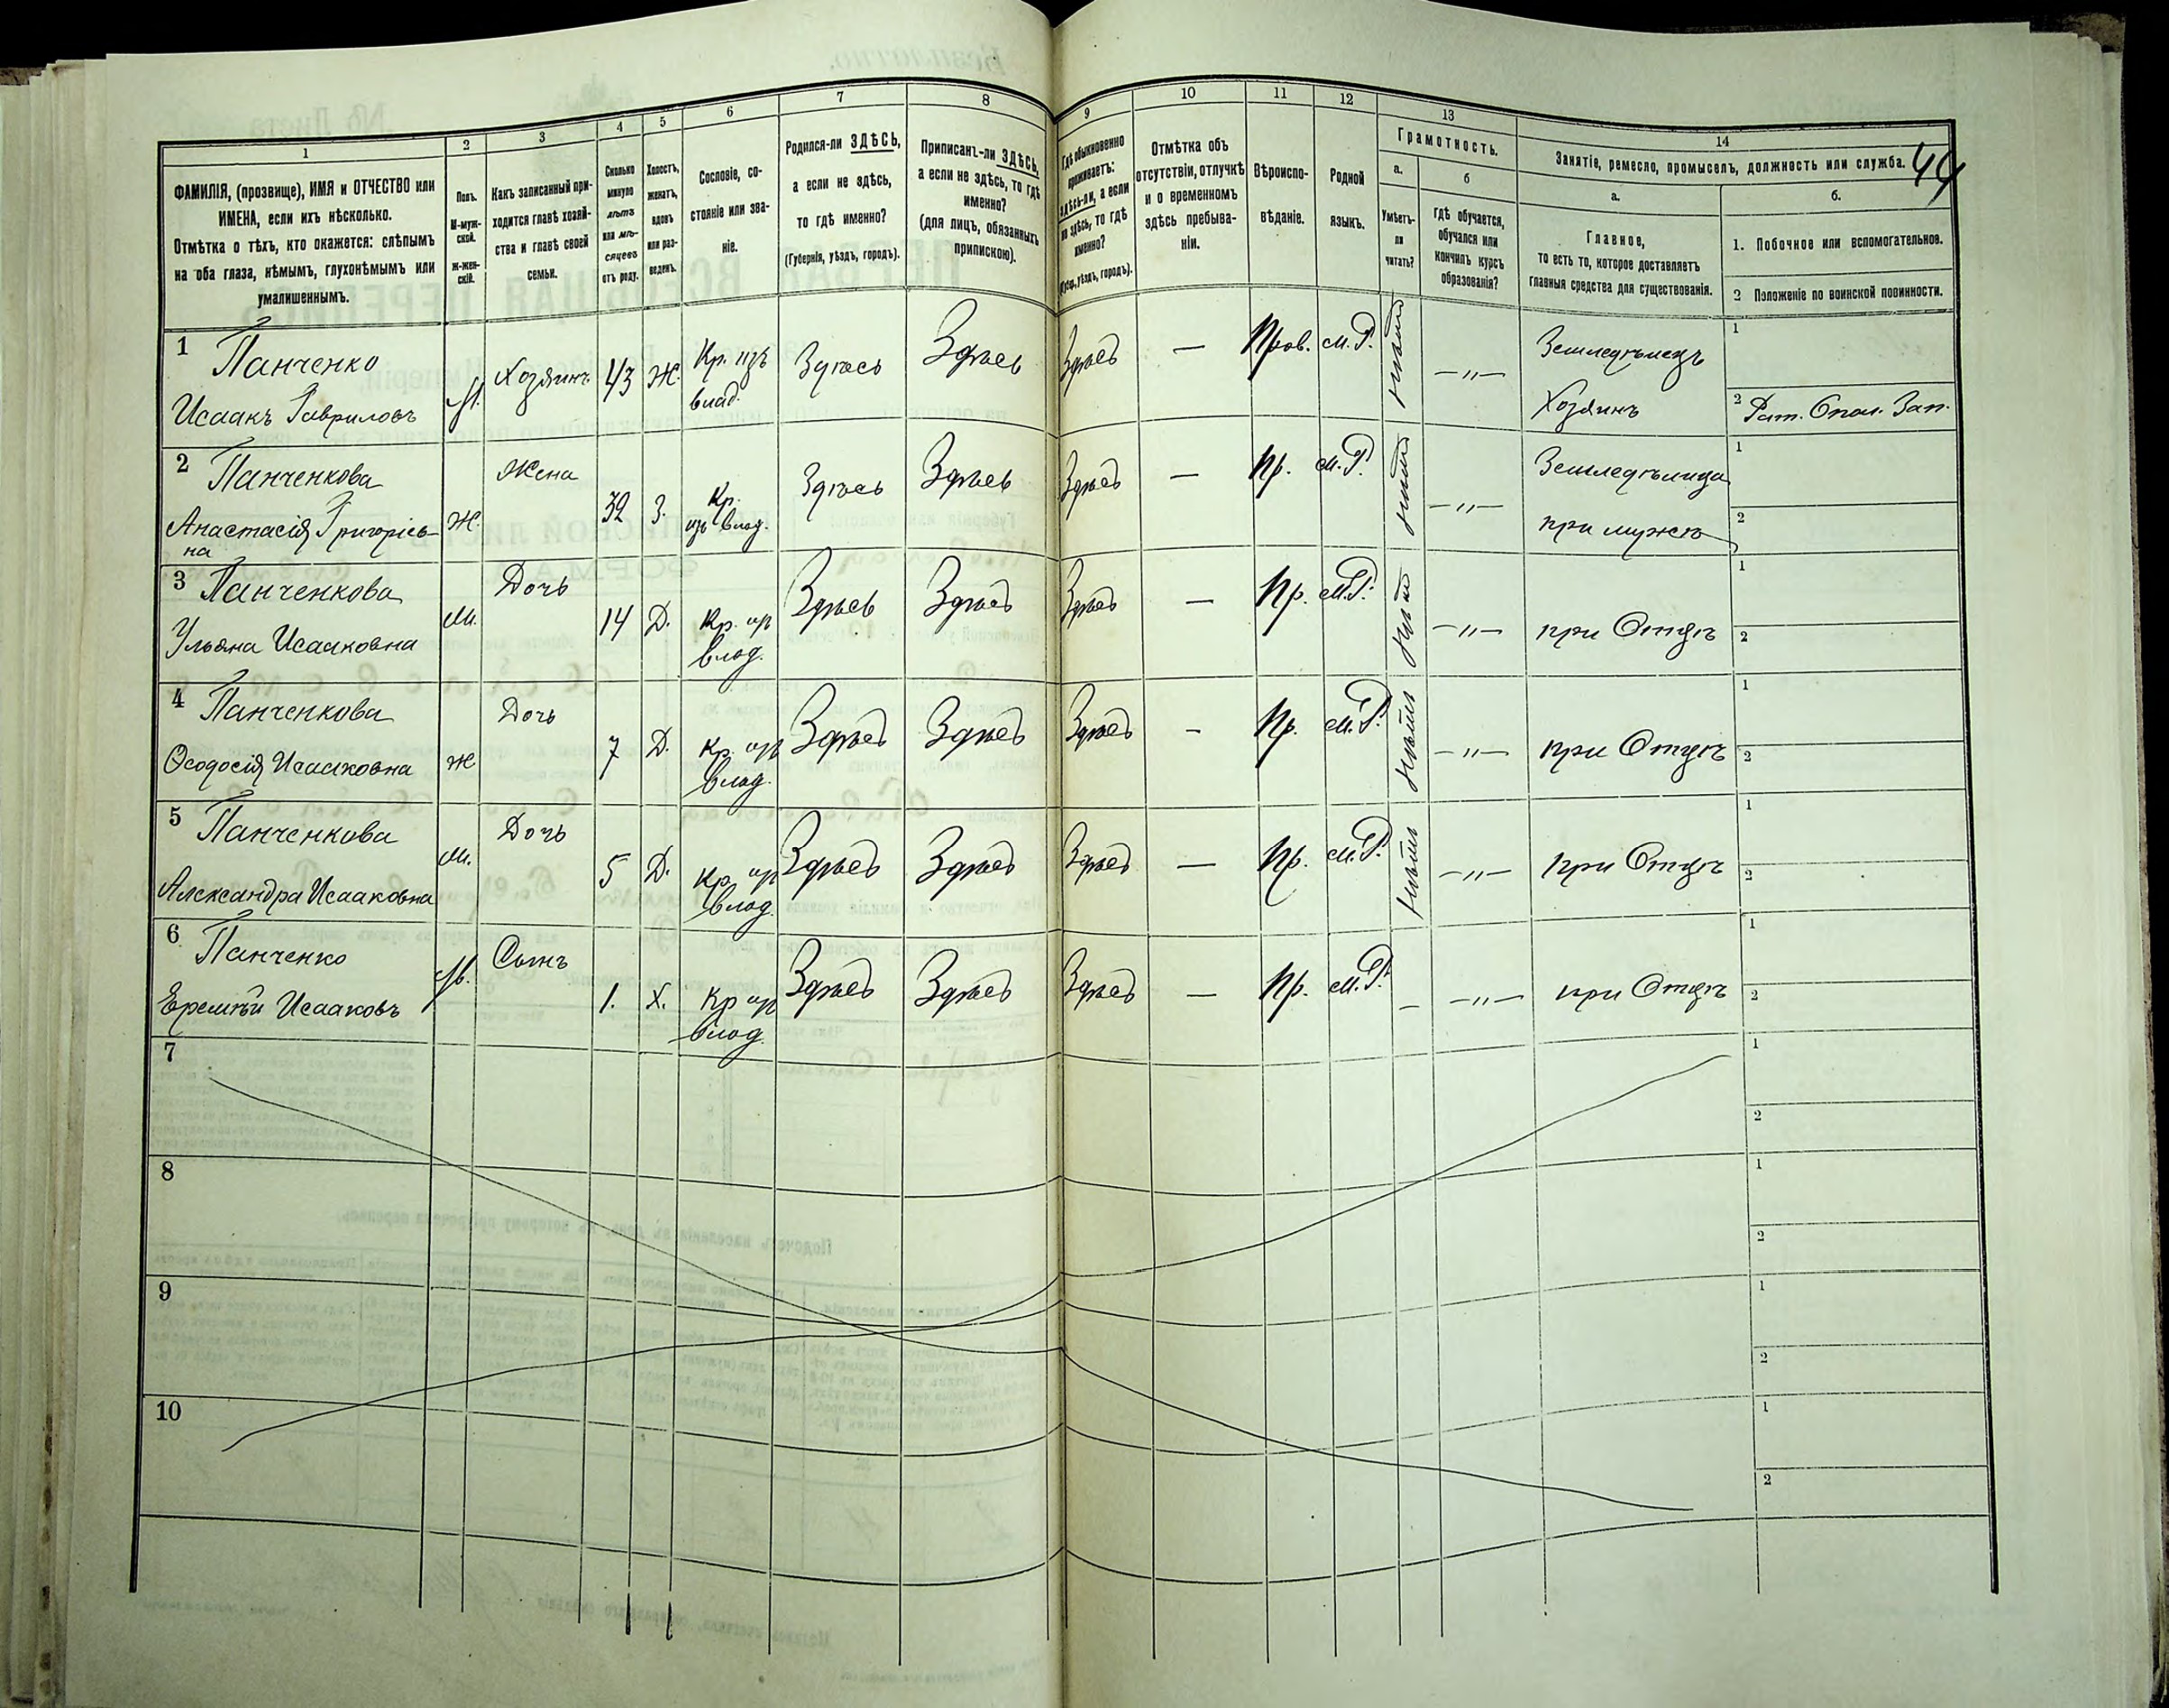 44
1 2 3 4 5 6 7 8 9 10 11 12 13 14
ФАМИЛІЯ, (прозвище), ИМЯ и ОТЧЕСТВО или
ИМЕНА, если ихъ нѣсколько.
Отмѣтка о тѣхъ, кто окажется: слѣпымъ
на оба глаза, нѣмымъ, глухонѣмымъ или
умалишеннымъ.
Полъ.
М-муж-
ской.
Ж-жен-
скій.
Какъ записанный при-
ходится главѣ хозяй-
ства и главѣ своей
семьи.
Сколько
минуло
лѣтъ
или мѣ-
сяцевъ
отъ роду.
Холостъ,
женатъ,
вдовъ
или раз-
веденъ.
Сословіе, со-
стояніе или зва-
ніе.
Родился-ли ЗДѢСЬ,
а если не здѣсь,
то гдѣ именно?
(Губернія, уѣздъ, городъ).
Приписанъ-ли ЗДѢСЬ,
а если не здѣсь, то гдѣ
именно?
(для лицъ, обязанныхъ
припискою).
Гдѣ обыкновенно
проживаетъ:
здѣсь-ли, а если
не здѣсь, то гдѣ
именно?
(Губ., уѣздъ, городъ).
Отмѣтка объ
отсутствіи, отлучкѣ
и о временномъ
здѣсь пребыва-
ніи.
Вѣроиспо-
вѣданіе.
Родной
языкъ.
Грамотность.
а.
Умѣетъ-
ли
читать?
б
Гдѣ обучается,
обучался или
кончилъ курсъ
образованія?
Занятіе, ремесло, промыселъ, должность или служба.
а.
Главное,
то есть то, которое доставляетъ
главныя средства для существованія.
б.
1. Побочное или вспомогательное.
2 Положеніе по воинской повинности.
1 Панченко
Исаакъ Гавриловъ
М. Хозяинъ 43 Ж. Кр. изъ
влад.
Здѣсь Здѣсь Здѣсь — Прав. М.Р. нѣтъ —"— Земледѣлецъ
Хозяинъ
1
2 Рат. Опол. Зап.
2 Панченкова
Анастасія Григорьев-
на
Ж. Жена 32 З. Кр.
изъ влад.
Здѣсь Здѣсь Здѣсь — Пр. М.Р. нѣтъ —"— Земледѣлица
при мужѣ
1
2
3 Панченкова
Ульяна Исааковна
М. Дочь 14 Д. Кр. из
влад.
Здѣсь Здѣсь Здѣсь — Пр. М.Р. нѣтъ —"— при Отцѣ
1
2
4 Панченкова
Ѳеодосія Исааковна
Ж Дочь 7 Д. Кр. изъ
влад.
Здѣсь Здѣсь Здѣсь — Пр. М.Р. нѣтъ —"— при Отцѣ
1
2
5 Панченкова
Александра Исааковна
М. Дочь 5 Д. Кр. из
влад.
Здѣсь Здѣсь Здѣсь — Пр. М.Р. нѣтъ —"— при Отцѣ
1
2
6 Панченко
Еремѣй Исааковъ
М. Сынъ 1. Х. Кр из
влад.
Здѣсь Здѣсь Здѣсь — Пр. М.Р. — —"— при Отцѣ
1
2
7
1
2
8
1
2
9
1
2
10
1
2